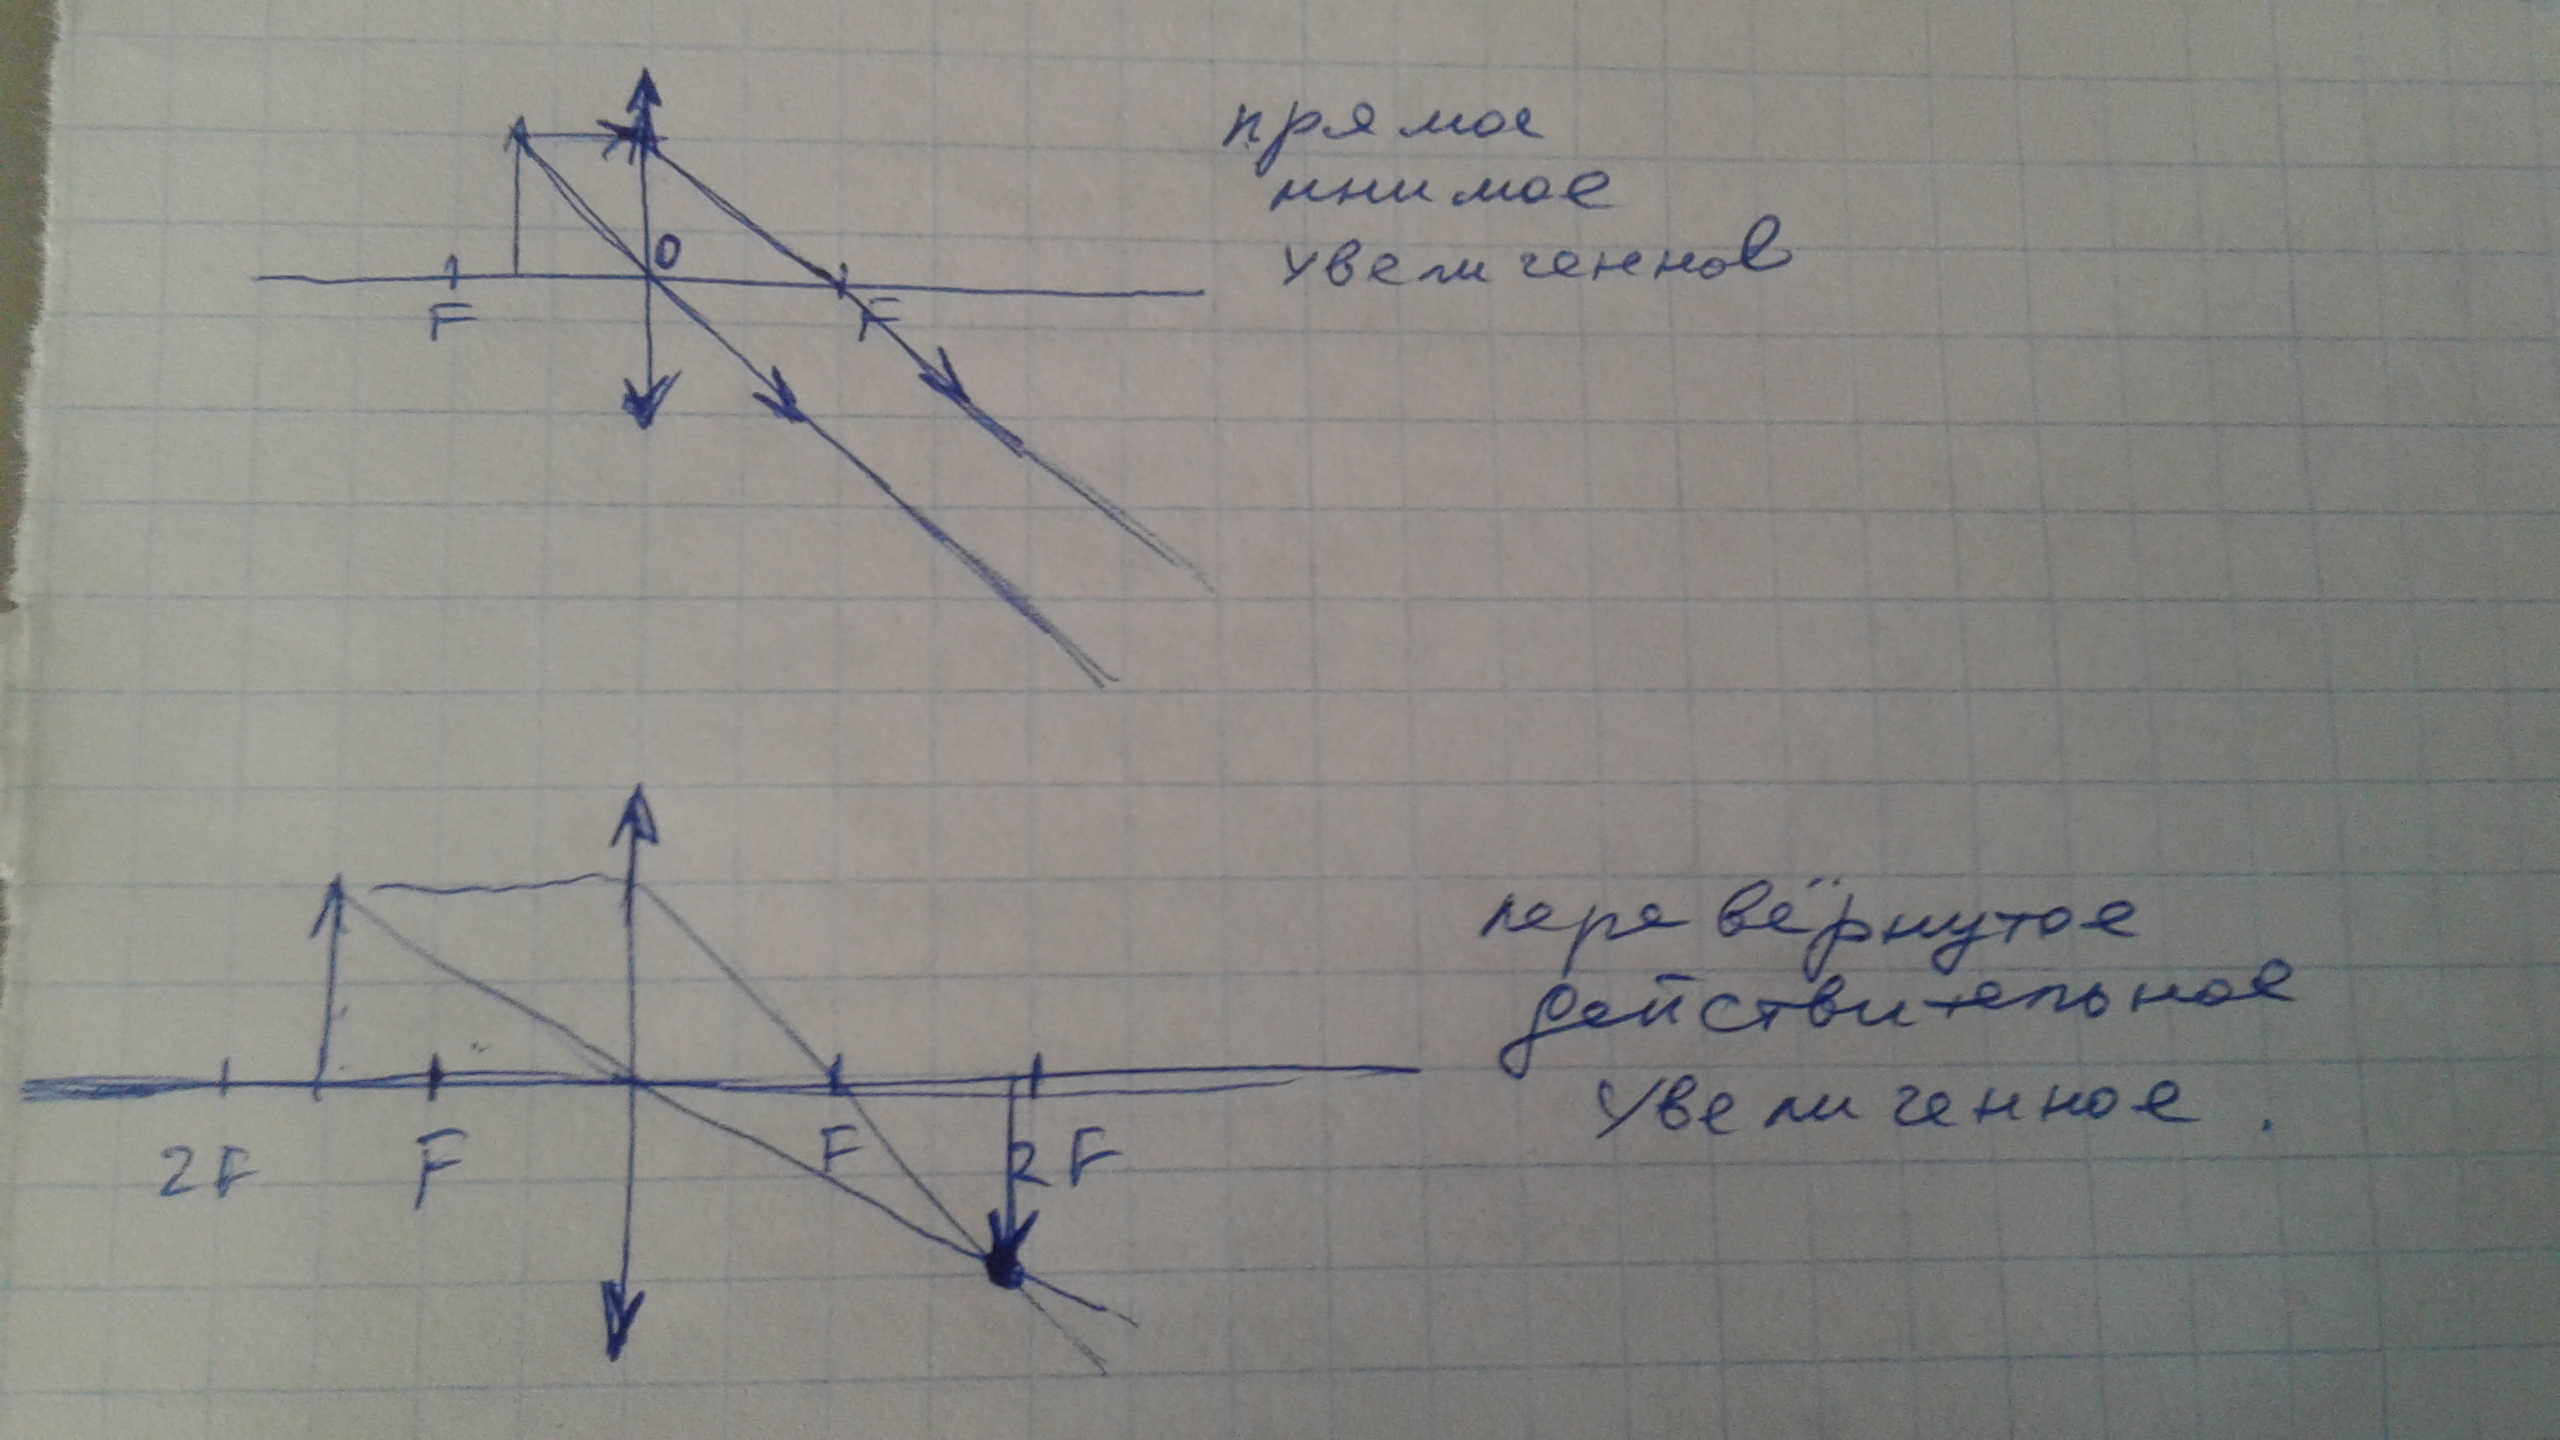 прямое
мнимое
увеличенное
О
F
F
перевёрнутое
действительное
увеличенное.
2F
F
F
2F